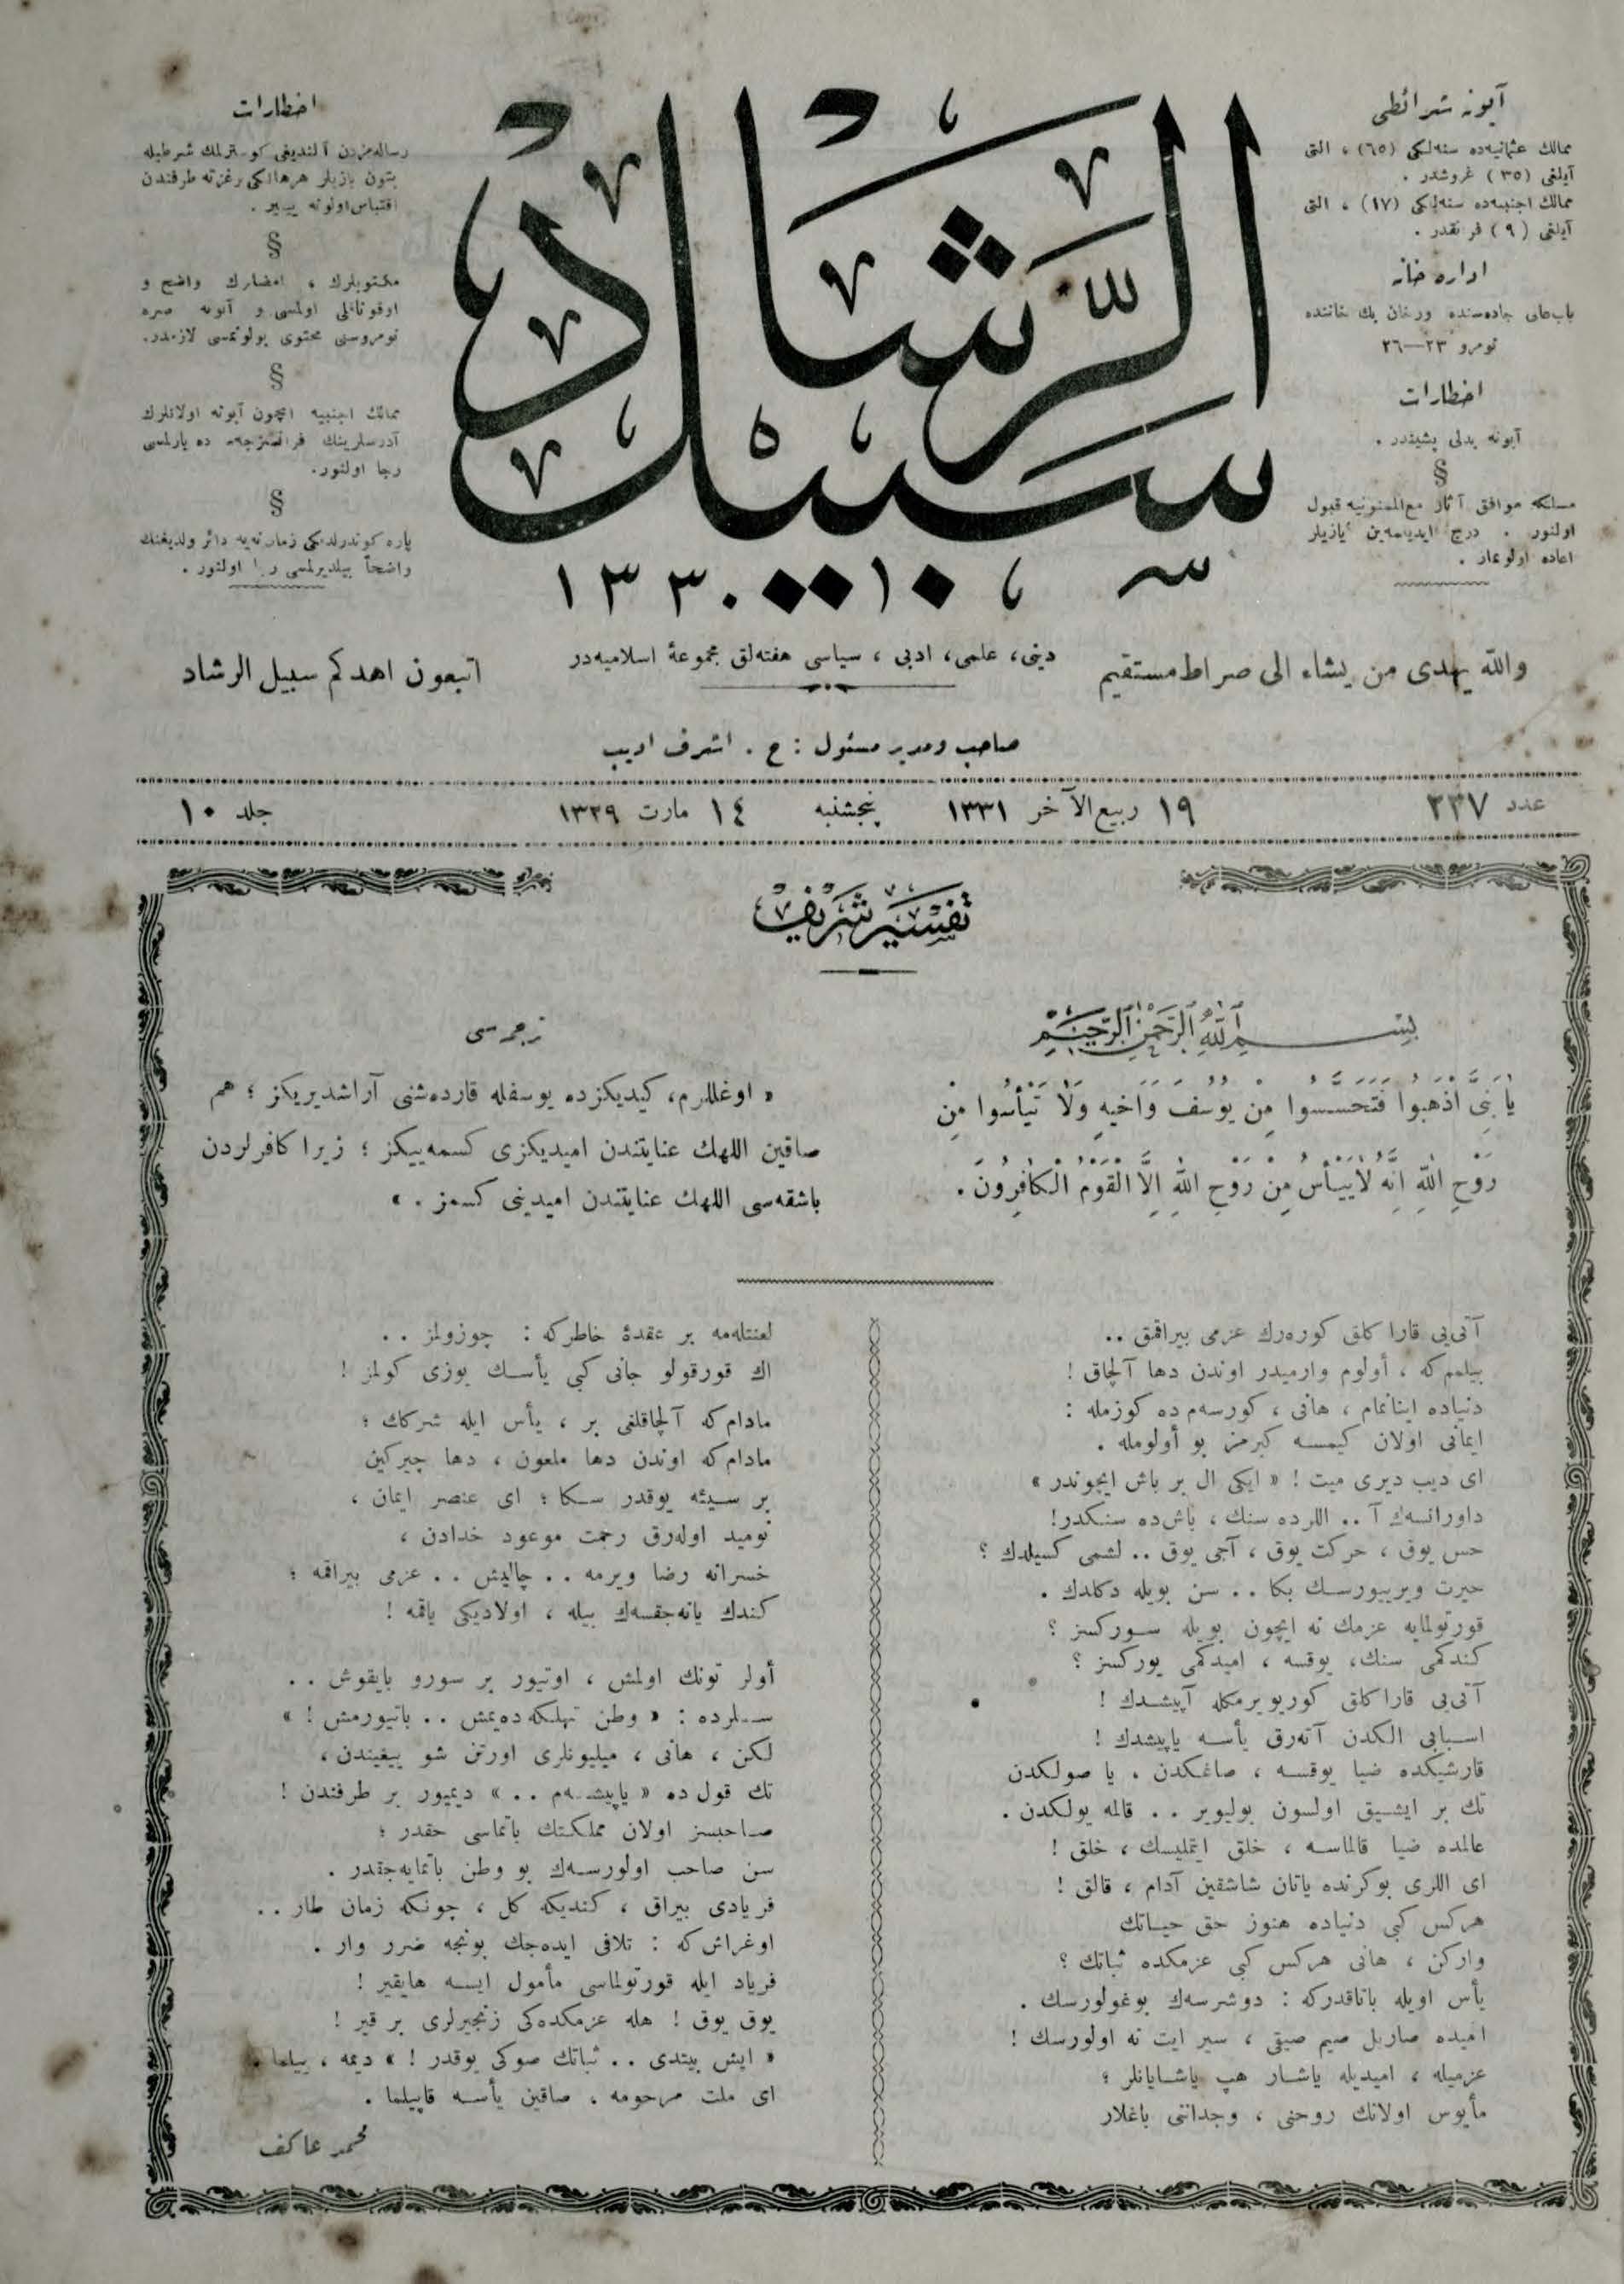 آبونه شرائطی
ممالك عثمانیه‌ده سنه‌لكی (٦٥) ، التی
آیلغی (٣٥) غروشدر .
ممالك اجنبیه‌ده سنه‌لكی (١٧) ، التی
آیلغی (٩) فرانقدر .
اداره خانه
باب‌عالی جاده‌سنده ورخان بك خاننده
نومرو ٢٣—٢٦
اخطارات
آبونه بدلی پشیندر .
§
مسلكه موافق آثار مع‌الممنونیه قبول
اولنور . درج ایدیلمه‌ین یازیلر
اعاده اولونماز .
سبیل الرشاد
١٣٣٠
اخطارات
رساله‌مزدن آلندیغی كوسترلمك شرطیله
بتون یازیلر هرهانكی بر غزته طرفندن
اقتباس اولونه بیلیر .
§
مكتوبلرك ، امضارك واضح و
اوقوناقلی اولمسی و آبونه صره
نومروسنی محتوی بولونمسی لازمدر.
§
ممالك اجنبیه ایچون آبونه اولانلرك
آدرسلرینك فرانسزجه ده یازلمسی
رجا اولنور.
§
پاره كوندرلدیكی زمان نه‌یه دائر ولدیغنك
واضحاً بیلدیرلمسی رجا اولنور .
والله یهدی من یشاء الی صراط مستقیم
دینی، علمی، ادبی ، سیاسی هفته‌لق مجموعهٔ اسلامیه‌در
اتبعون اهدكم سبیل الرشاد
صاحب ومدیر مسئول : ح . اشرف ادیب
عدد ٢٣٧
١٩ ربیع‌الآخر ١٣٣١ پنجشنبه ١٤ مارت ١٣٢٩
جلد ١٠
تفسیر شریف
بِسْمِ اللّٰهِ الرَّحْمٰنِ الرَّحِیمِ
یَا بَنِیَّ اذْهَبُوا فَتَحَسَّسُوا مِنْ یُوسُفَ وَاَخیهِ وَلَا تَیْأَسُوا مِنْ
رَوْحِ اللّٰهِ اِنَّهُ لَایَیْأَسُ مِنْ رَوْحِ اللّٰهِ اِلَّا الْقَوْمُ الْكَافِرُونَ .
ترجمه‌سی
« اوغللرم، كیدیكزده یوسفله قارده‌شنی آراشدیریكز ؛ هم
صاقین اللهك عنایتندن امیدیكزی كسمه‌ییكز ؛ زیرا كافرلردن
باشقه‌سی اللهك عنایتندن امیدینی كسمز . »
آتی‌یی قارا كلق كوره‌رك عزمی بیراقمق ..
بیلمم كه ، أولوم وارمیدر اوندن دها آلچاق !
دنیاده اینانمام ، هانی ، كورسه‌م ده كوزمله :
ایمانی اولان كیمسه كبرمز بو أولومله .
ای دیب دیری میت ! « ایكی ال بر باش ایچوندر »
داورانسه‌ك آ .. اللرده سنك ، باش‌ده سنكدر!
حس یوق ، حركت یوق ، آجی یوق .. لشمی كسیلدك ؟
حیرت ویرییورسك بكا .. سن بویله دكلدك .
قورتولمایه عزمك نه ایچون بویله سوركسز ؟
كندكمی سنك، یوقسه ، امیدكمی یوركسز ؟
آتی‌یی قارا كلق كوریویرمكله آپیشدك !
اسبابی الكدن آته‌رق یأسه یاپیشدك !
قارشیكده ضیا یوقسه ، صاغكدن . یا صولكدن
تك بر ایشیق اولسون بولیویر .. قالمه یولكدن .
عالمده ضیا قالماسه ، خلق ایتملیسك ، خلق !
ای اللری بوكرنده یاتان شاشقین آدام ، قالق !
هركس كبی دنیاده هنوز حق حیاتك
واركن ، هانی هركس كبی عزمكده ثباتك ؟
یأس اویله باتاقدركه : دوشرسه‌ك بوغولورسك .
امیده صاریل صیم صیقی ، سیر ایت نه اولورسك !
عزمیله ، امیدیله یاشار هپ یاشایانلر ؛
مأیوس اولانك روحنی ، وجداننی باغلار
لعنتلمه بر عقدهٔ خاطركه : چوزولمز ..
اك قورقولو جانی كبی یأسك یوزی كولمز !
مادام‌كه آلچاقلغی بر ، یأس ایله شركك ؛
مادام‌كه اوندن دها ملعون ، دها چیركین
بر سیئه یوقدر سكا ؛ ای عنصر ایمان ،
نومید اوله‌رق رحمت موعود خدادن ،
خسرانه رضا ویرمه .. چالیش .. عزمی بیراقمه ؛
كندك یانه‌جقسه‌ك بیله ، اولادیكی یاقمه !
أولر تونك اولمش ، اوتیور بر سورو بایقوش ..
سسلرده : « وطن تهلكه‌ده‌یمش .. باتیورمش ! »
لكن ، هانی ، میلیونلری اورتن شو ییغیندن ،
تك قول ده « یاپیشسه‌م .. » دیمیور بر طرفندن !
صاحبسز اولان مملكتك باتماسی حقدر ؛
سن صاحب اولورسه‌ك بو وطن باتمایه‌جقدر .
فریادی بیراق ، كندیكه كل ، چونكه زمان طار ..
اوغراش‌كه : تلافی ایده‌جك بونجه ضرر وار .
فریاد ایله قورتولماسی مأمول ایسه هایقیر !
یوق یوق ! هله عزمكده‌كی زنجیرلری بر قیر !
« ایش بیتدی .. ثباتك صوكی یوقدر ! » دیمه ، ییلما .
ای ملت مرحومه ، صاقین یأسه قاپیلما .
محمد عاكف